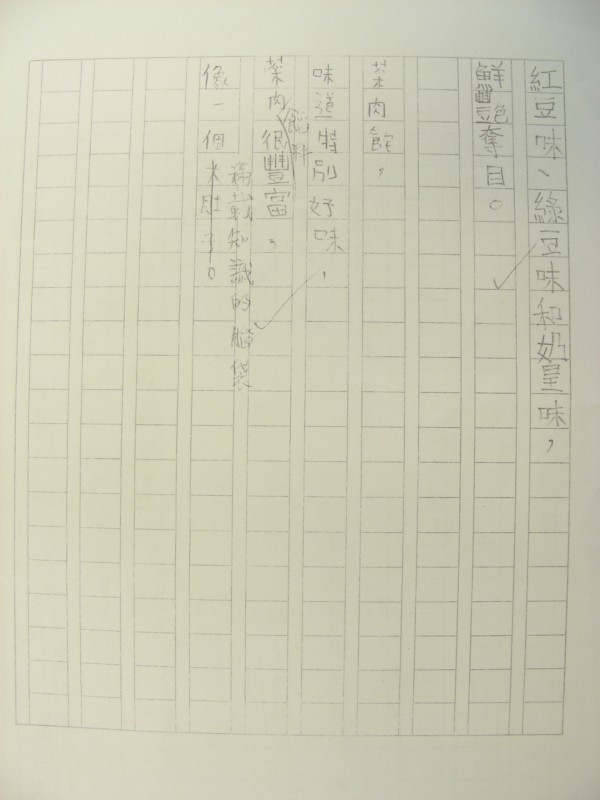 紅豆味、綠豆味和奶皇味，
鮮艷奪目。
菜肉餡，
味道特別好味，
餡料
菜肉很豐富，
滿載知識的腦袋
像一個大肚子。